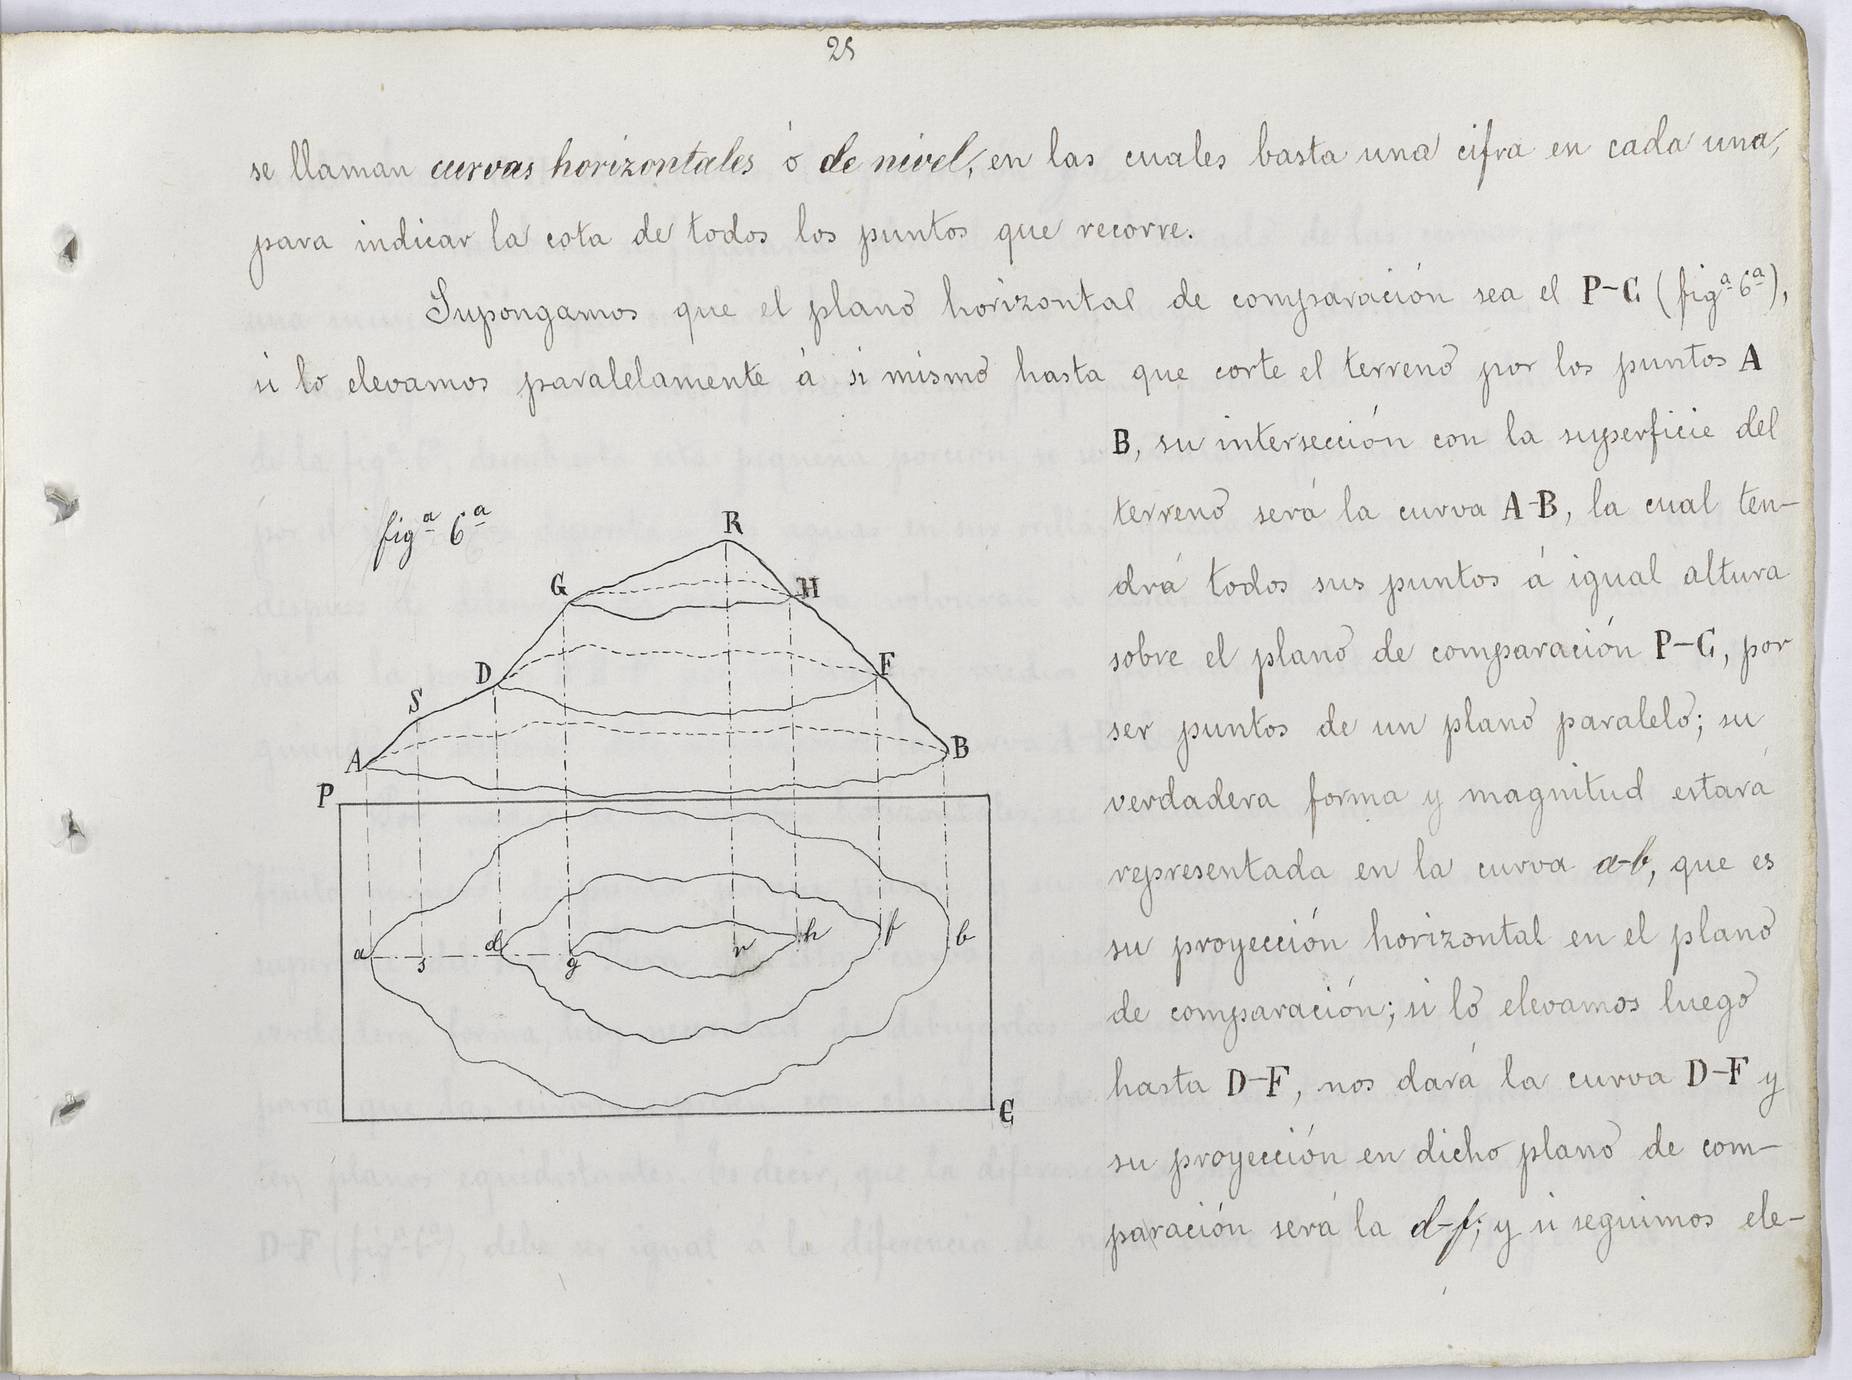 25
se llaman curvas horizontales ó de nivel, en las cuales basta una cifra en cada una,
para indicar la cota de todos los puntos que recorre.
Supongamos que el plano horizontal de comparación sea el P-C (figª 6ª),
si lo elevamos paralelamente á si mismo hasta que corte el terreno por los puntos A
B, su intersección con la superficie del
terreno será la curva A-B, la cual ten-
drá todos sus puntos á igual altura
sobre el plano de comparación P-C, por
ser puntos de un plano paralelo; su
verdadera forma y magnitud estará
representada en la curva a-b, que es
su proyección horizontal en el plano
de comparación; si lo elevamos luego
hasta D-F, nos dará la curva D-F y
su proyección en dicho plano de com-
paración será la d-f; y si seguimos ele-
figª 6ª
R
G
H
D
F
S
A
B
P
a
s
d
g
r
h
f
b
C